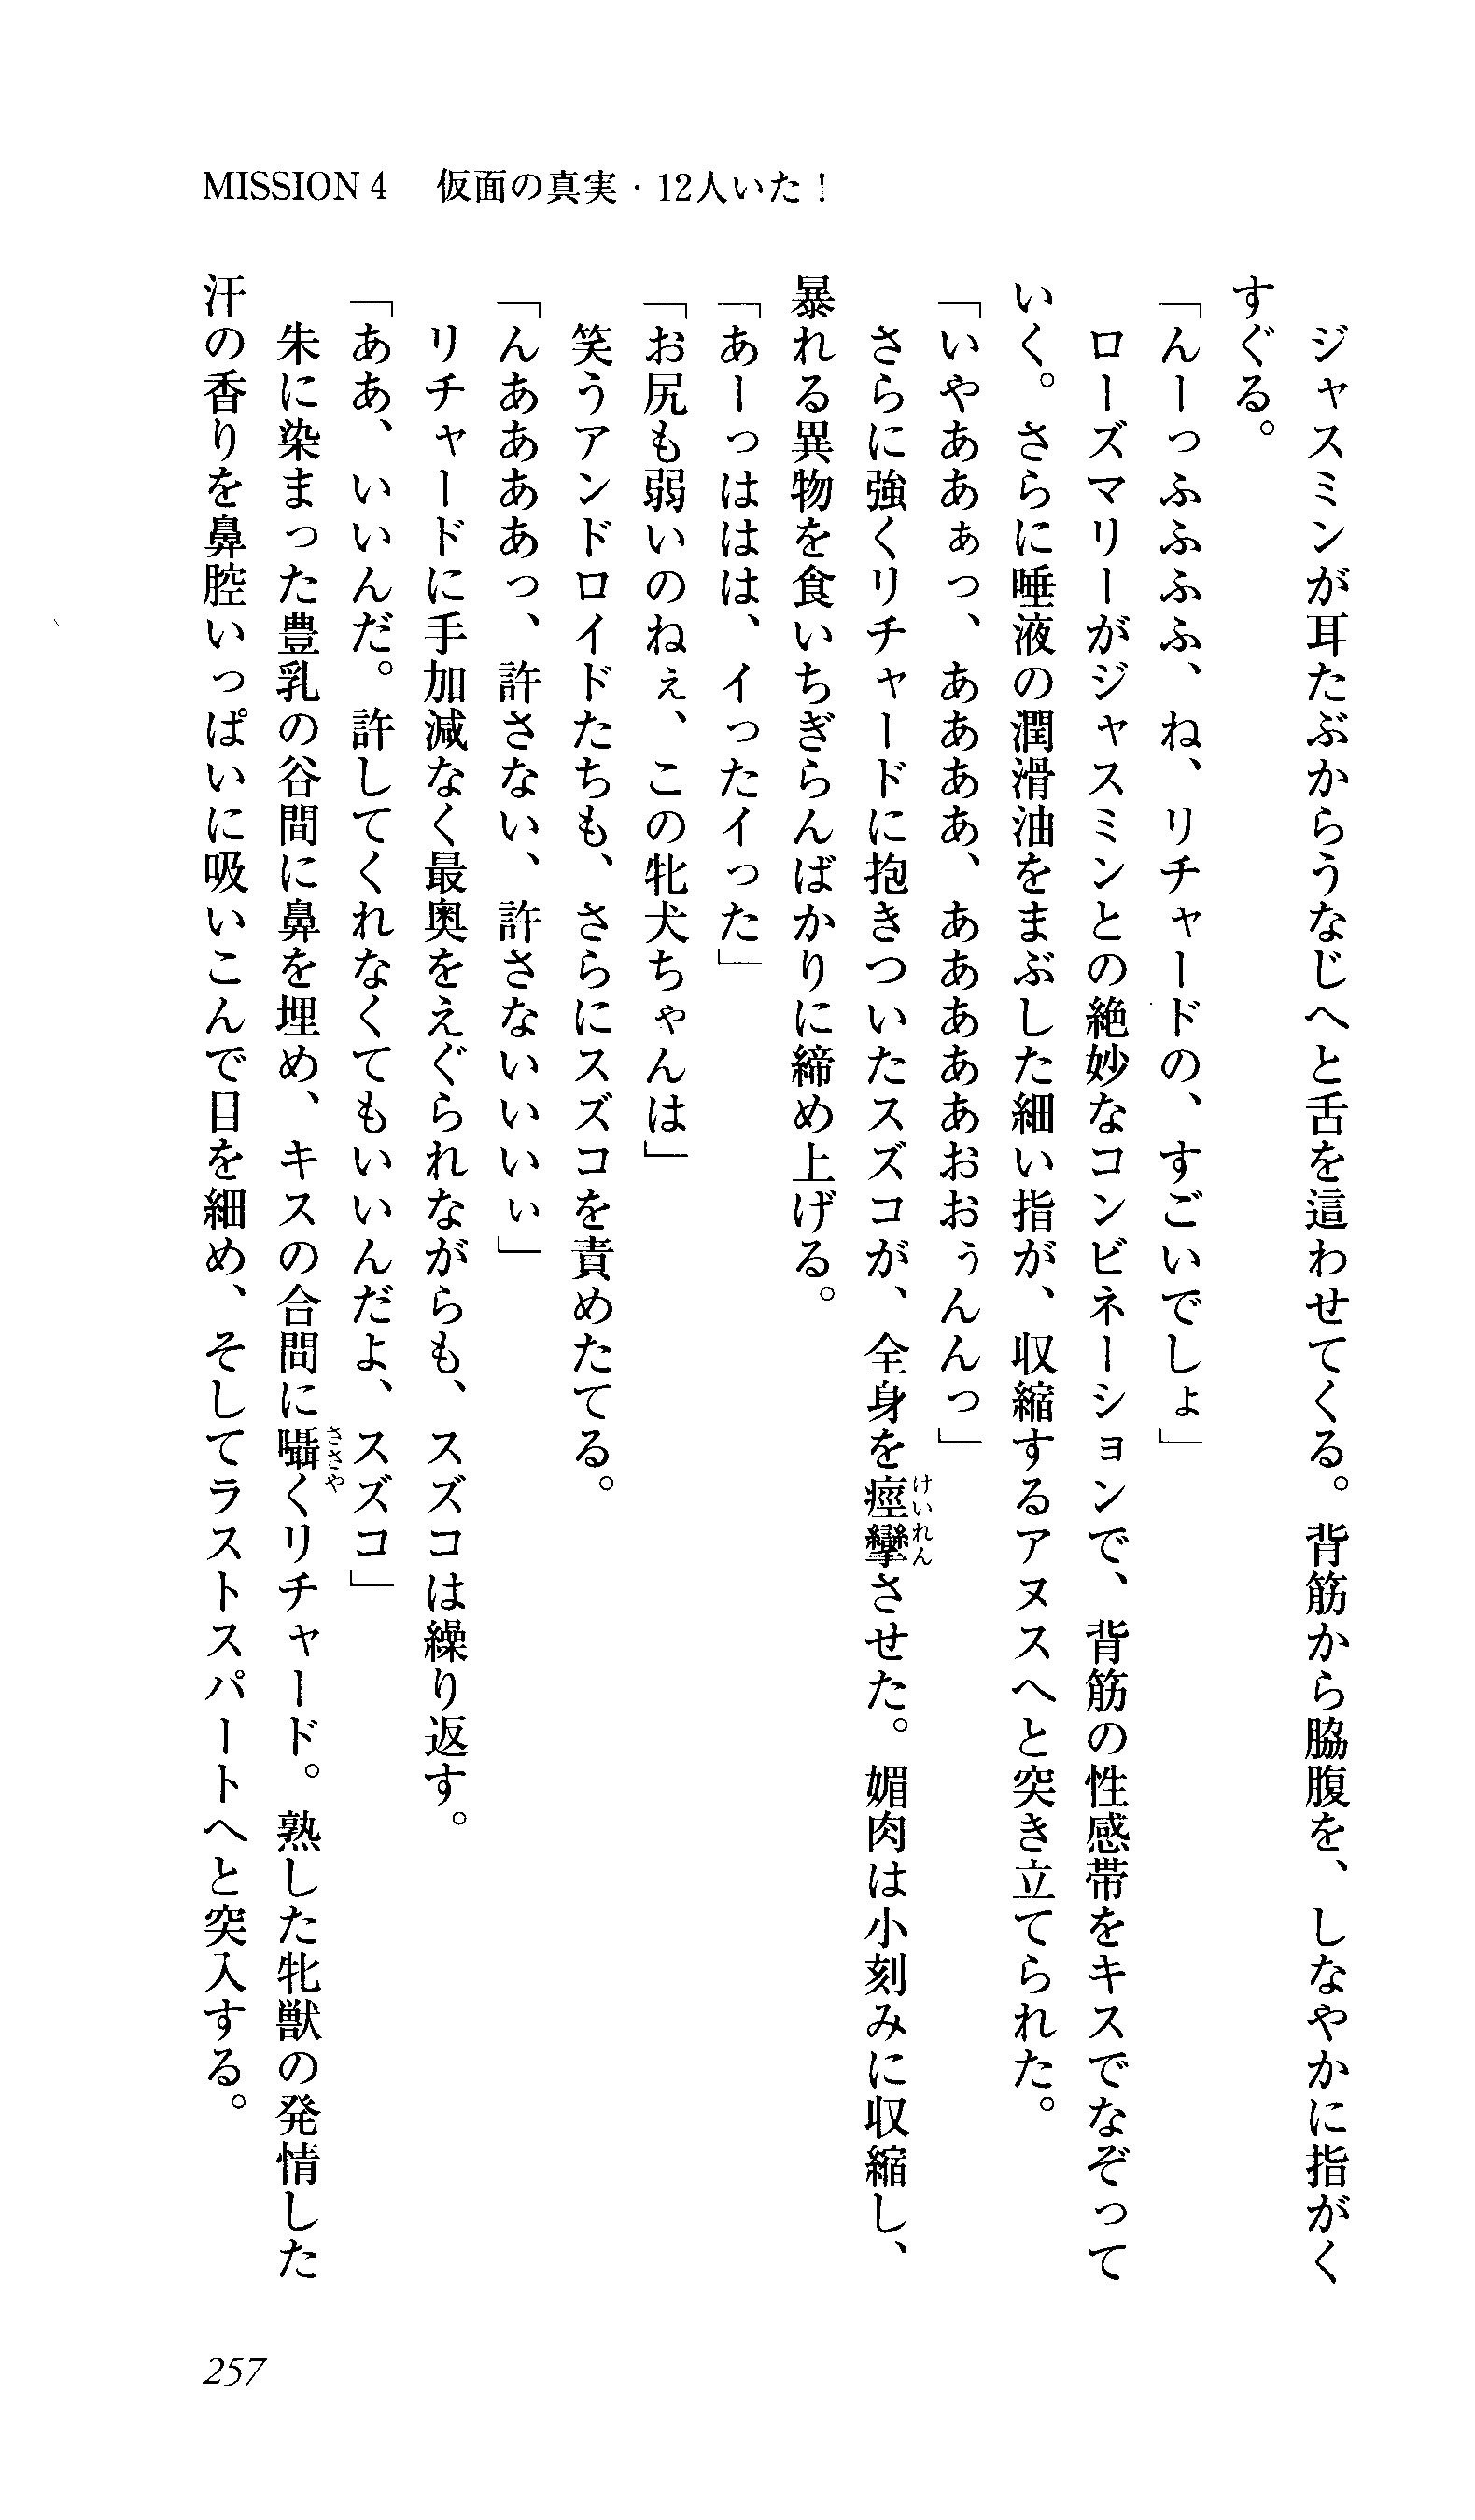 MISSION 4　仮面の真実・12人いた！
　ジャスミンが耳たぶからうなじへと舌を這わせてくる。背筋から脇腹を、しなやかに指がく
すぐる。
「んーっふふふふ、ね、リチャードの、すごいでしょ」
　ローズマリーがジャスミンとの絶妙なコンビネーションで、背筋の性感帯をキスでなぞって
いく。さらに唾液の潤滑油をまぶした細い指が、収縮するアヌスへと突き立てられた。
「いやああぁっ、ああああ、あああああおおぅんんっ」
　さらに強くリチャードに抱きついたスズコが、全身を痙攣させた。媚肉は小刻みに収縮し、
暴れる異物を食いちぎらんばかりに締め上げる。
「あーっははは、イったイった」
「お尻も弱いのねぇ、この牝犬ちゃんは」
　笑うアンドロイドたちも、さらにスズコを責めたてる。
「んああああっ、許さない、許さないいいぃ」
　リチャードに手加減なく最奥をえぐられながらも、スズコは繰り返す。
「ああ、いいんだ。許してくれなくてもいいんだよ、スズコ」
　朱に染まった豊乳の谷間に鼻を埋め、キスの合間に囁くリチャード。熟した牝獣の発情した
汗の香りを鼻腔いっぱいに吸いこんで目を細め、そしてラストスパートへと突入する。
257